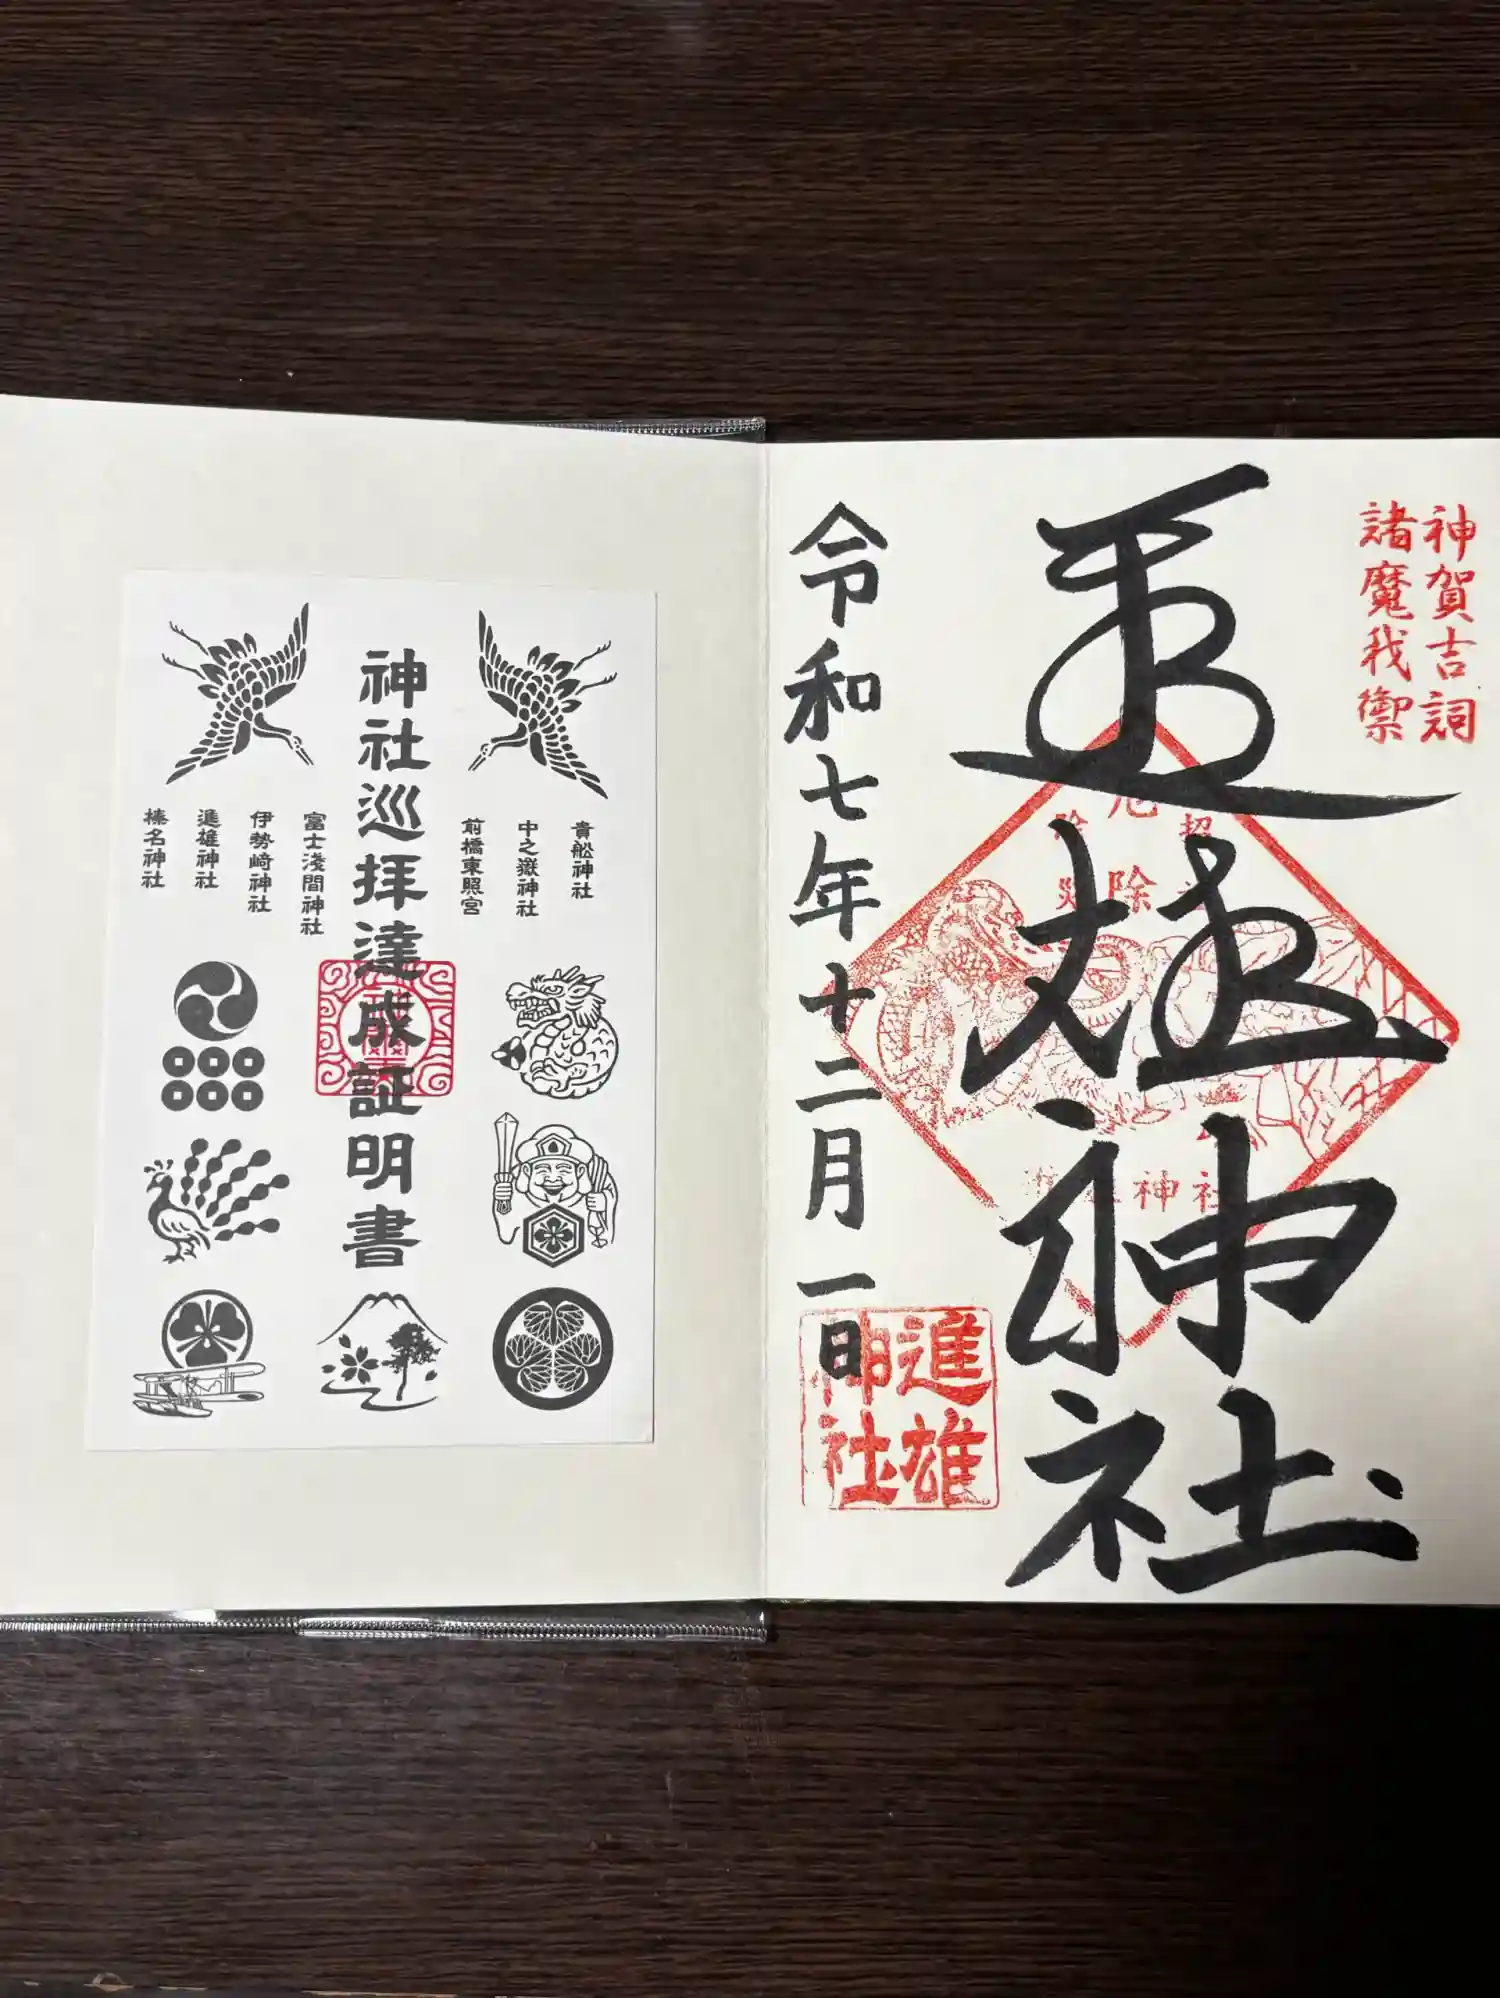 神賀吉詞
諸魔我禦
進雄神社
除
神社
令和七年十二月一日
進雄
神社
貴船神社
中之嶽神社
前橋東照宮
神社巡拝達成証明書
富士浅間神社
伊勢崎神社
進雄神社
榛名神社